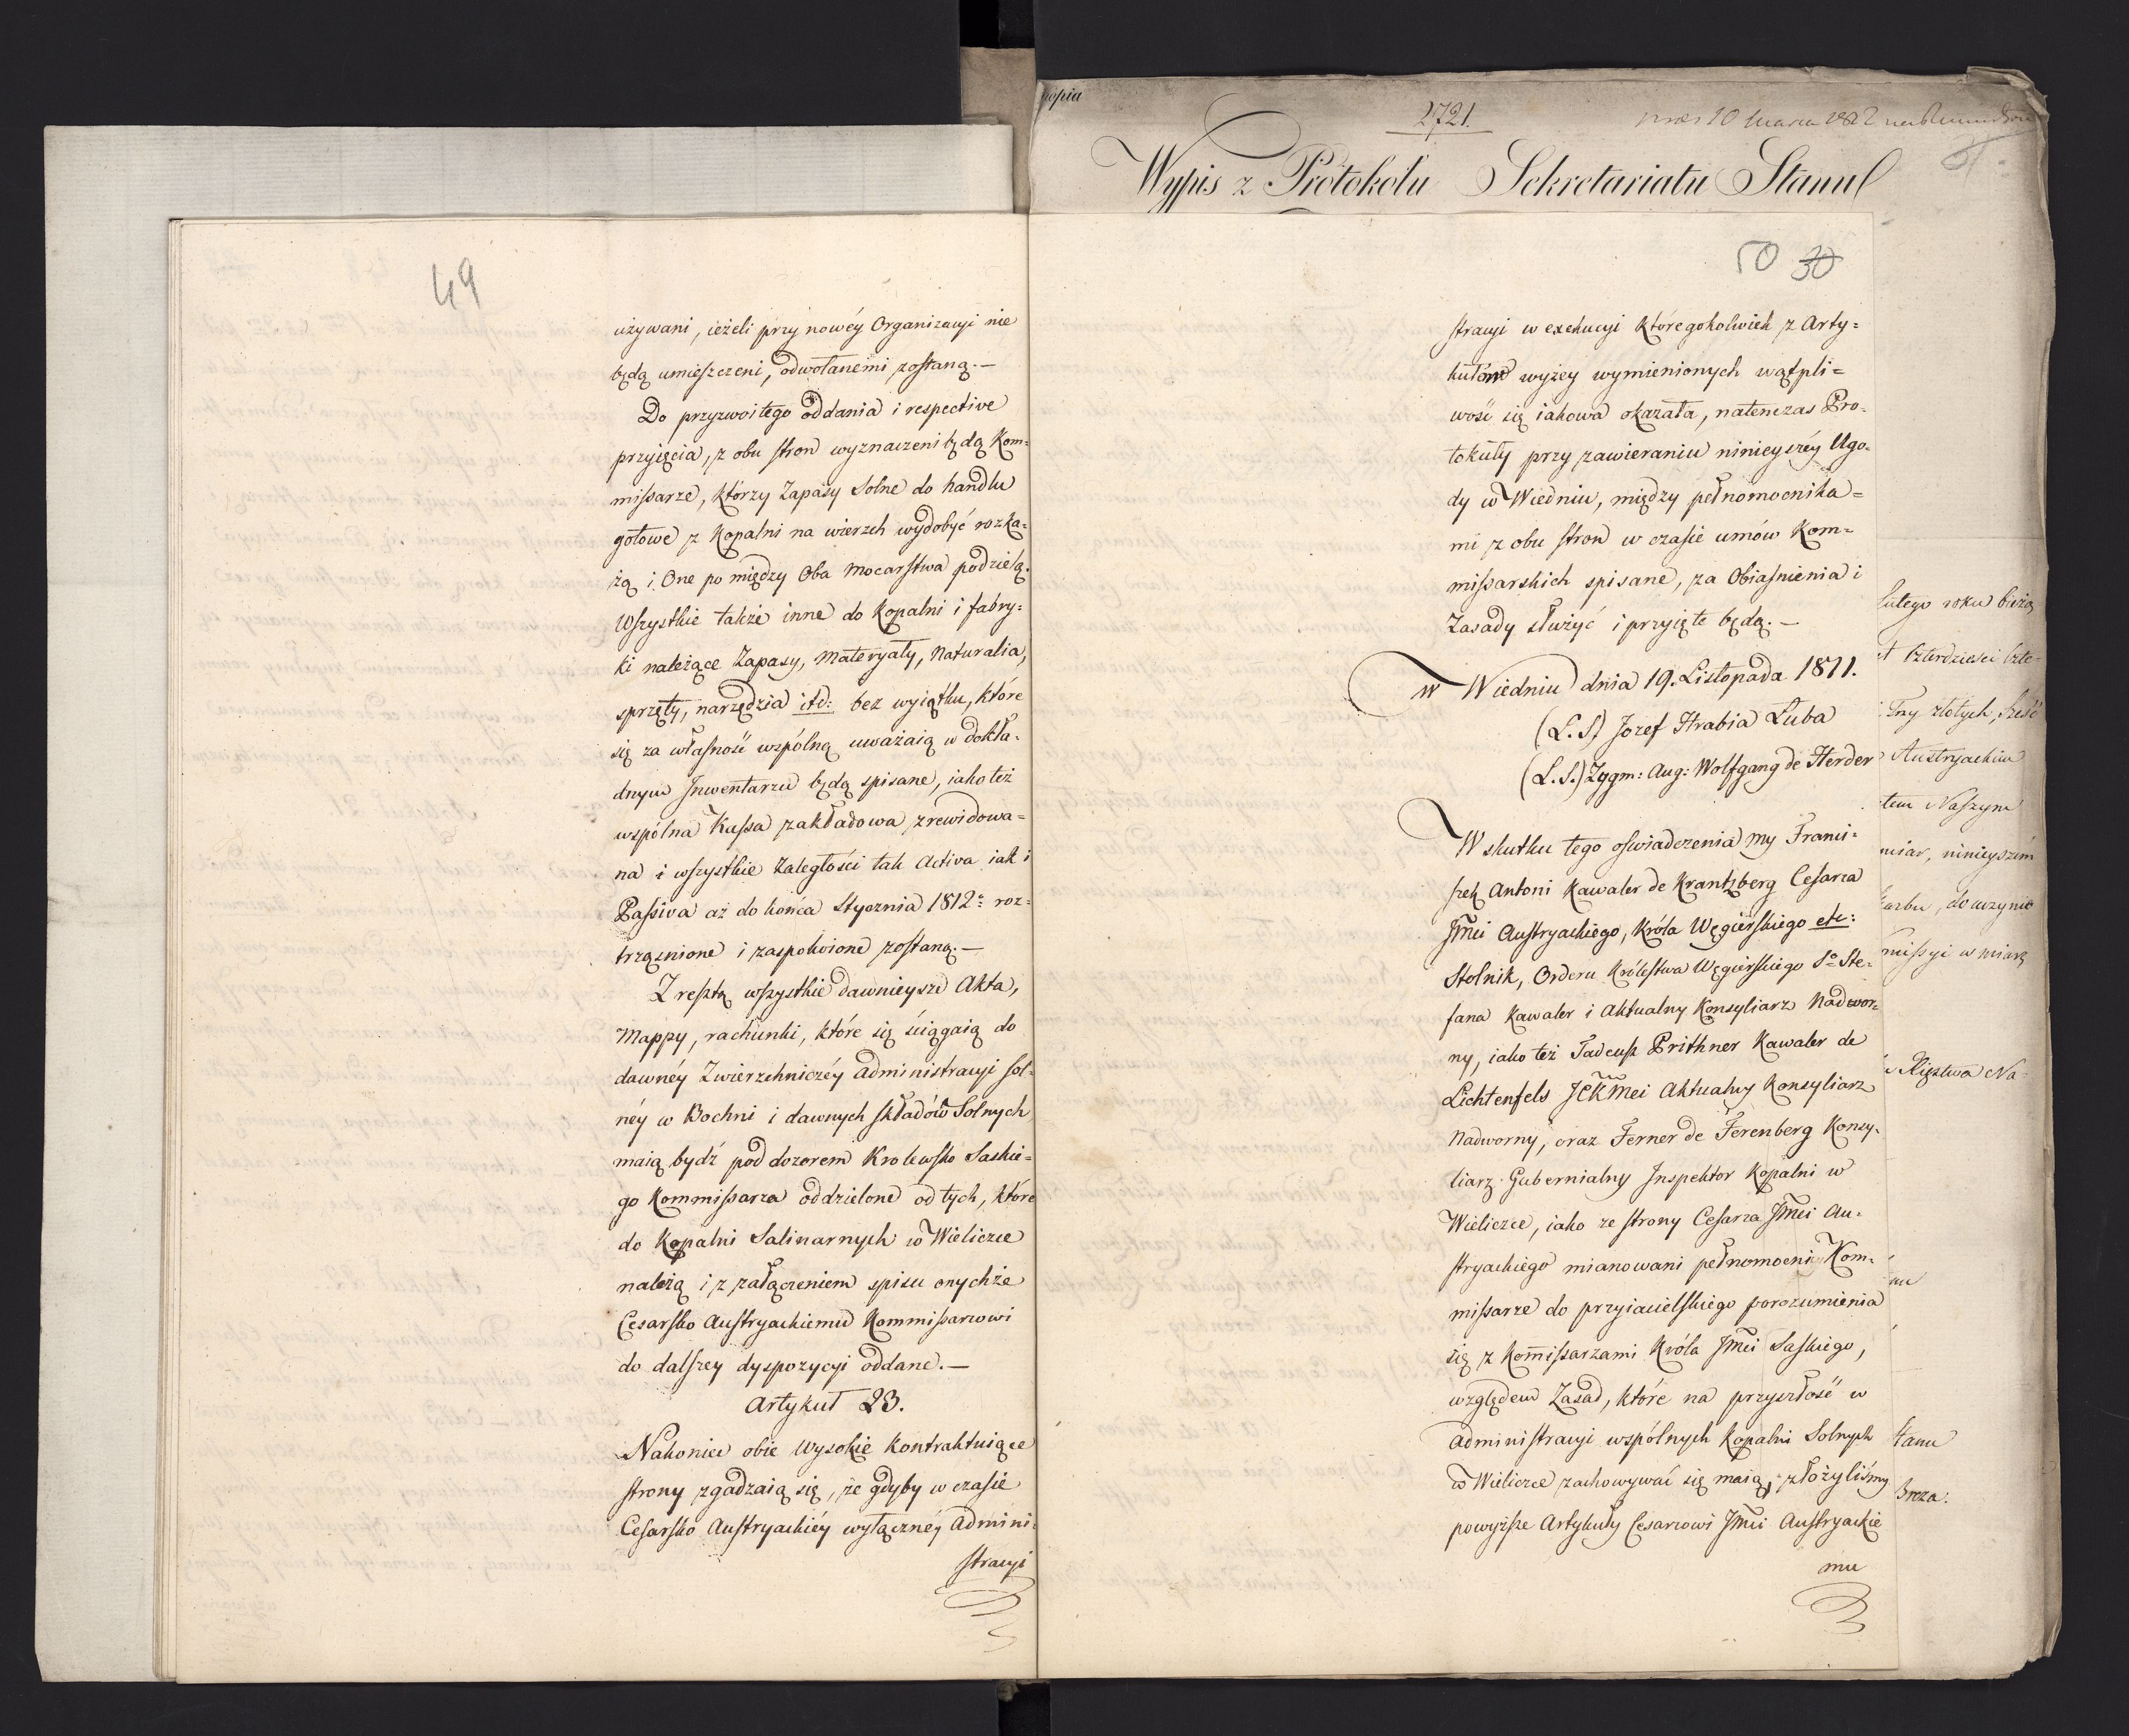 49
używani, ieżeli przy nowéy Organizacyi nie
będą umieszczeni, odwołanemi zostaną.—
Do przyzwoitego oddania i respective
przyięcia, z obu stron wyznaczeni będą Kom=
missarze, którzy Zapasy Solne do handlu
gotowe z Kopalni na wierzch wydobyć rozka=
żą i One po między Oba Mocarstwa podzielą.
Wszystkie także inne do Kopalni i fabry=
ki należące Zapasy, Materyały, Naturalia,
sprzęty, narzędzia itd: bez wyiątku, które
się za własność wspólną uważaią w dokła=
dnym Inwentarzu będą spisane, iako też
wspólna Kassa zakładowa zrewidowa=
na i wszystkie zaległości tak Activa iak i
Passiva aż do końca Stycznia 1812 roz=
trząśnione i zaspokoione zostaną.—
Z resztą wszystkie dawnieysze Akta,
Mappy, rachunki, które się ściągaią do
dawnéy Zwierzchniczéy Administracyi sol=
néy w Bochni i dawnych składów Solnych
maią bydź pod dozorem Krolewsko Saskie=
go Kommissarza oddzielone od tych, które
do Kopalni Salinarnych w Wieliczce
należą i z załączeniem spisu onychże
Cesarsko Austryackiemu Kommissarzowi
do dalszey dyspozycyi oddane.—
Artykuł 23.
Nakoniec obie Wysokie Kontraktuiące
strony zgadzaią się, że gdyby w czasie
Cesarsko Austryackiéy wyłącznéy Admini=
stracyi
kopia
2721.
10 Marca
Wypis z Protokołu Sekretariatu Stanu
50 30
stracyi w exekucyi któregokolwiek z Arty=
kułów wyżey wymienionych wątpli=
wość się iakowa okazała, natenczas Pro=
tokuły przy zawieraniu ninieyszéy Ugo=
dy w Wiedniu, między pełnomocnika=
mi z obu stron w czasie umów Kom=
missarskich spisane, za Obiaśnienia i
Zasady służyć i przyięte będą.—
W Wiedniu dnia 19. Listopada 1811.
(L.S) Jozef Hrabia Łuba
(L.S.) Zygm: Aug: Wolfgang de Herder
W skutku tego oświadczenia my Franci=
szek Antoni Kawaler de Krantzberg Cesarza
Jmci Austryackiego, Króla Węgierskiego etc:
Stolnik, Orderu Królestwa Węgierskiego So Ste=
fana Kawaler i Aktualny Konsyliarz Nadwor=
ny, iako też Tadeusz Prithner Kawaler de
Lichtenfels JCKMci Aktualny Konsyliarz
Nadworny, oraz Ferner de Ferenberg Konsy=
liarz Gubernialny Inspektor Kopalni w
Wieliczce, iako ze strony Cesarza Jmci Au=
stryackiego mianowani pełnomocni Kom=
missarze do przyiacielskiego porozumienia
się z Kommissarzami Króla Jmci Saskiego,
względem Zasad, które na przyszłość w
Administracyi wspólnych Kopalni Solnych
w Wieliczce zachowywać się maią, złożyliśmy
powyższe Artykuły Cesarzowi Jmci Austryackie
mu
Lutego roku bieżą
Czterdzieści Czte=
Złotych, Sześć
Austryackim
tem Naszym
miar, ninieyszém
karbu, do uczynie
missyi w miarę
Xięstwa Na
nu
Stanu
Breza: